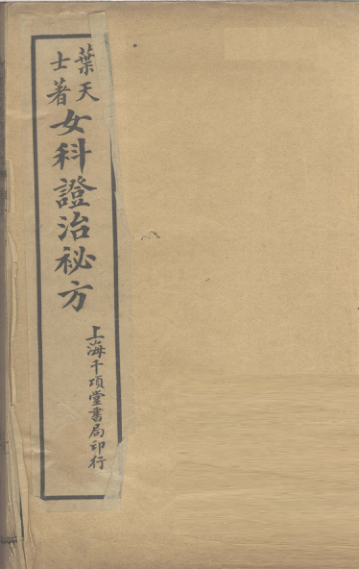 葉天士著
女科證治秘方
上海千頃堂書局印行